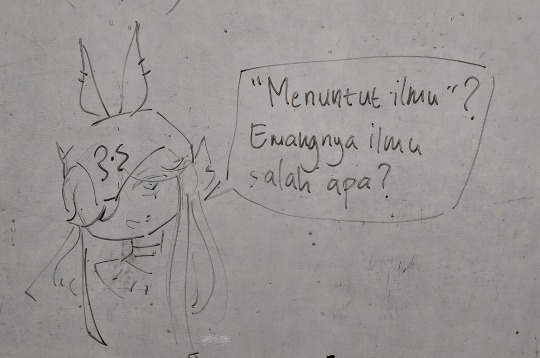 "Menuntut ilmu"?
Emangnya ilmu
salah apa?